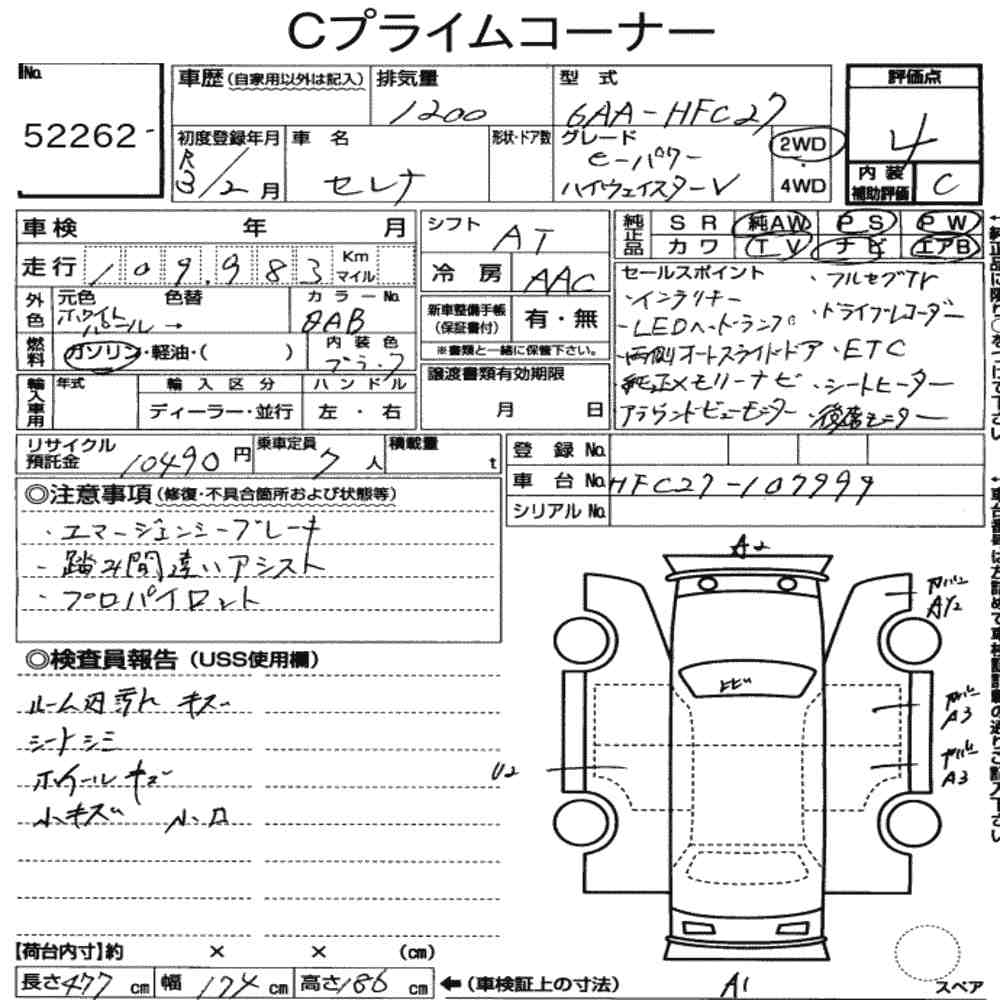 Cプライムコーナー
No.
52262
車歴(自家用以外は記入)
排気量
1200
型 式
6AA-HFC27
評価点
4
内装補助評価
C
初度登録年月
R3/2月
車 名
セレナ
形状・ドア数
グレード
e-パワー
ハイウェイスターV
2WD
・
4WD
車検 年 月
走行 109,983 Km マイル
外色
元色 色替
ホワイトパール→
カラーNo.
QAB
燃料
ガソリン・軽油・( )
内装色
ブラック
輸入車用
年式
輸入区分
ディーラー・並行
ハンドル
左・右
シフト
AT
冷房
AAC
新車整備手帳
(保証書付)
有・無
※書類と一緒に保管下さい。
譲渡書類有効期限
月 日
純正品
SR 純AW PS PW
カワ TV ナビ エアB
セールスポイント
・フルセグTV
・インテリキー
・ドライブレコーダー
・LEDヘッドランプ
・両側オートスライドドア ・ETC
・純正メモリーナビ ・シートヒーター
アラウンドビューモニター ・後席モニター
リサイクル預託金
10490円
乗車定員
7人
積載量
t
登録No.
車台No. HFC27-107999
シリアルNo.
◎注意事項(修復・不具合箇所および状態等)
・エマージェンシーブレーキ
・踏み間違いアシスト
・プロパイロット
◎検査員報告(USS使用欄)
ルーム内汚れ キズ
シートシミ
ホイールキズ
小キズ 小凹
A2
A1/2
A3
A3
U2
A1
スペア
【荷台内寸】約 × × (cm)
長さ477cm 幅174cm 高さ186cm ←(車検証上の寸法)